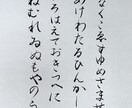 なくこゑすゆめさませ
あけわたるひんかし
ろはえておきつへに
ねむれゐぬもやのう